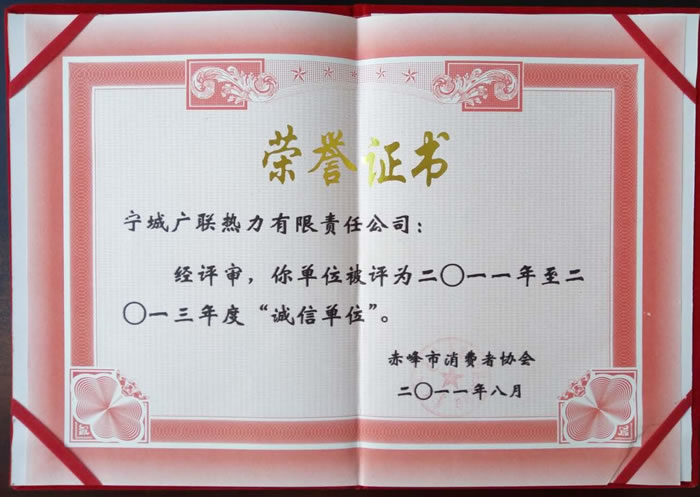 荣誉证书
宁城广联热力有限责任公司：
经评审，你单位被评为二〇一一年至二
〇一三年度“诚信单位”。
赤峰市消费者协会
二〇一一年八月